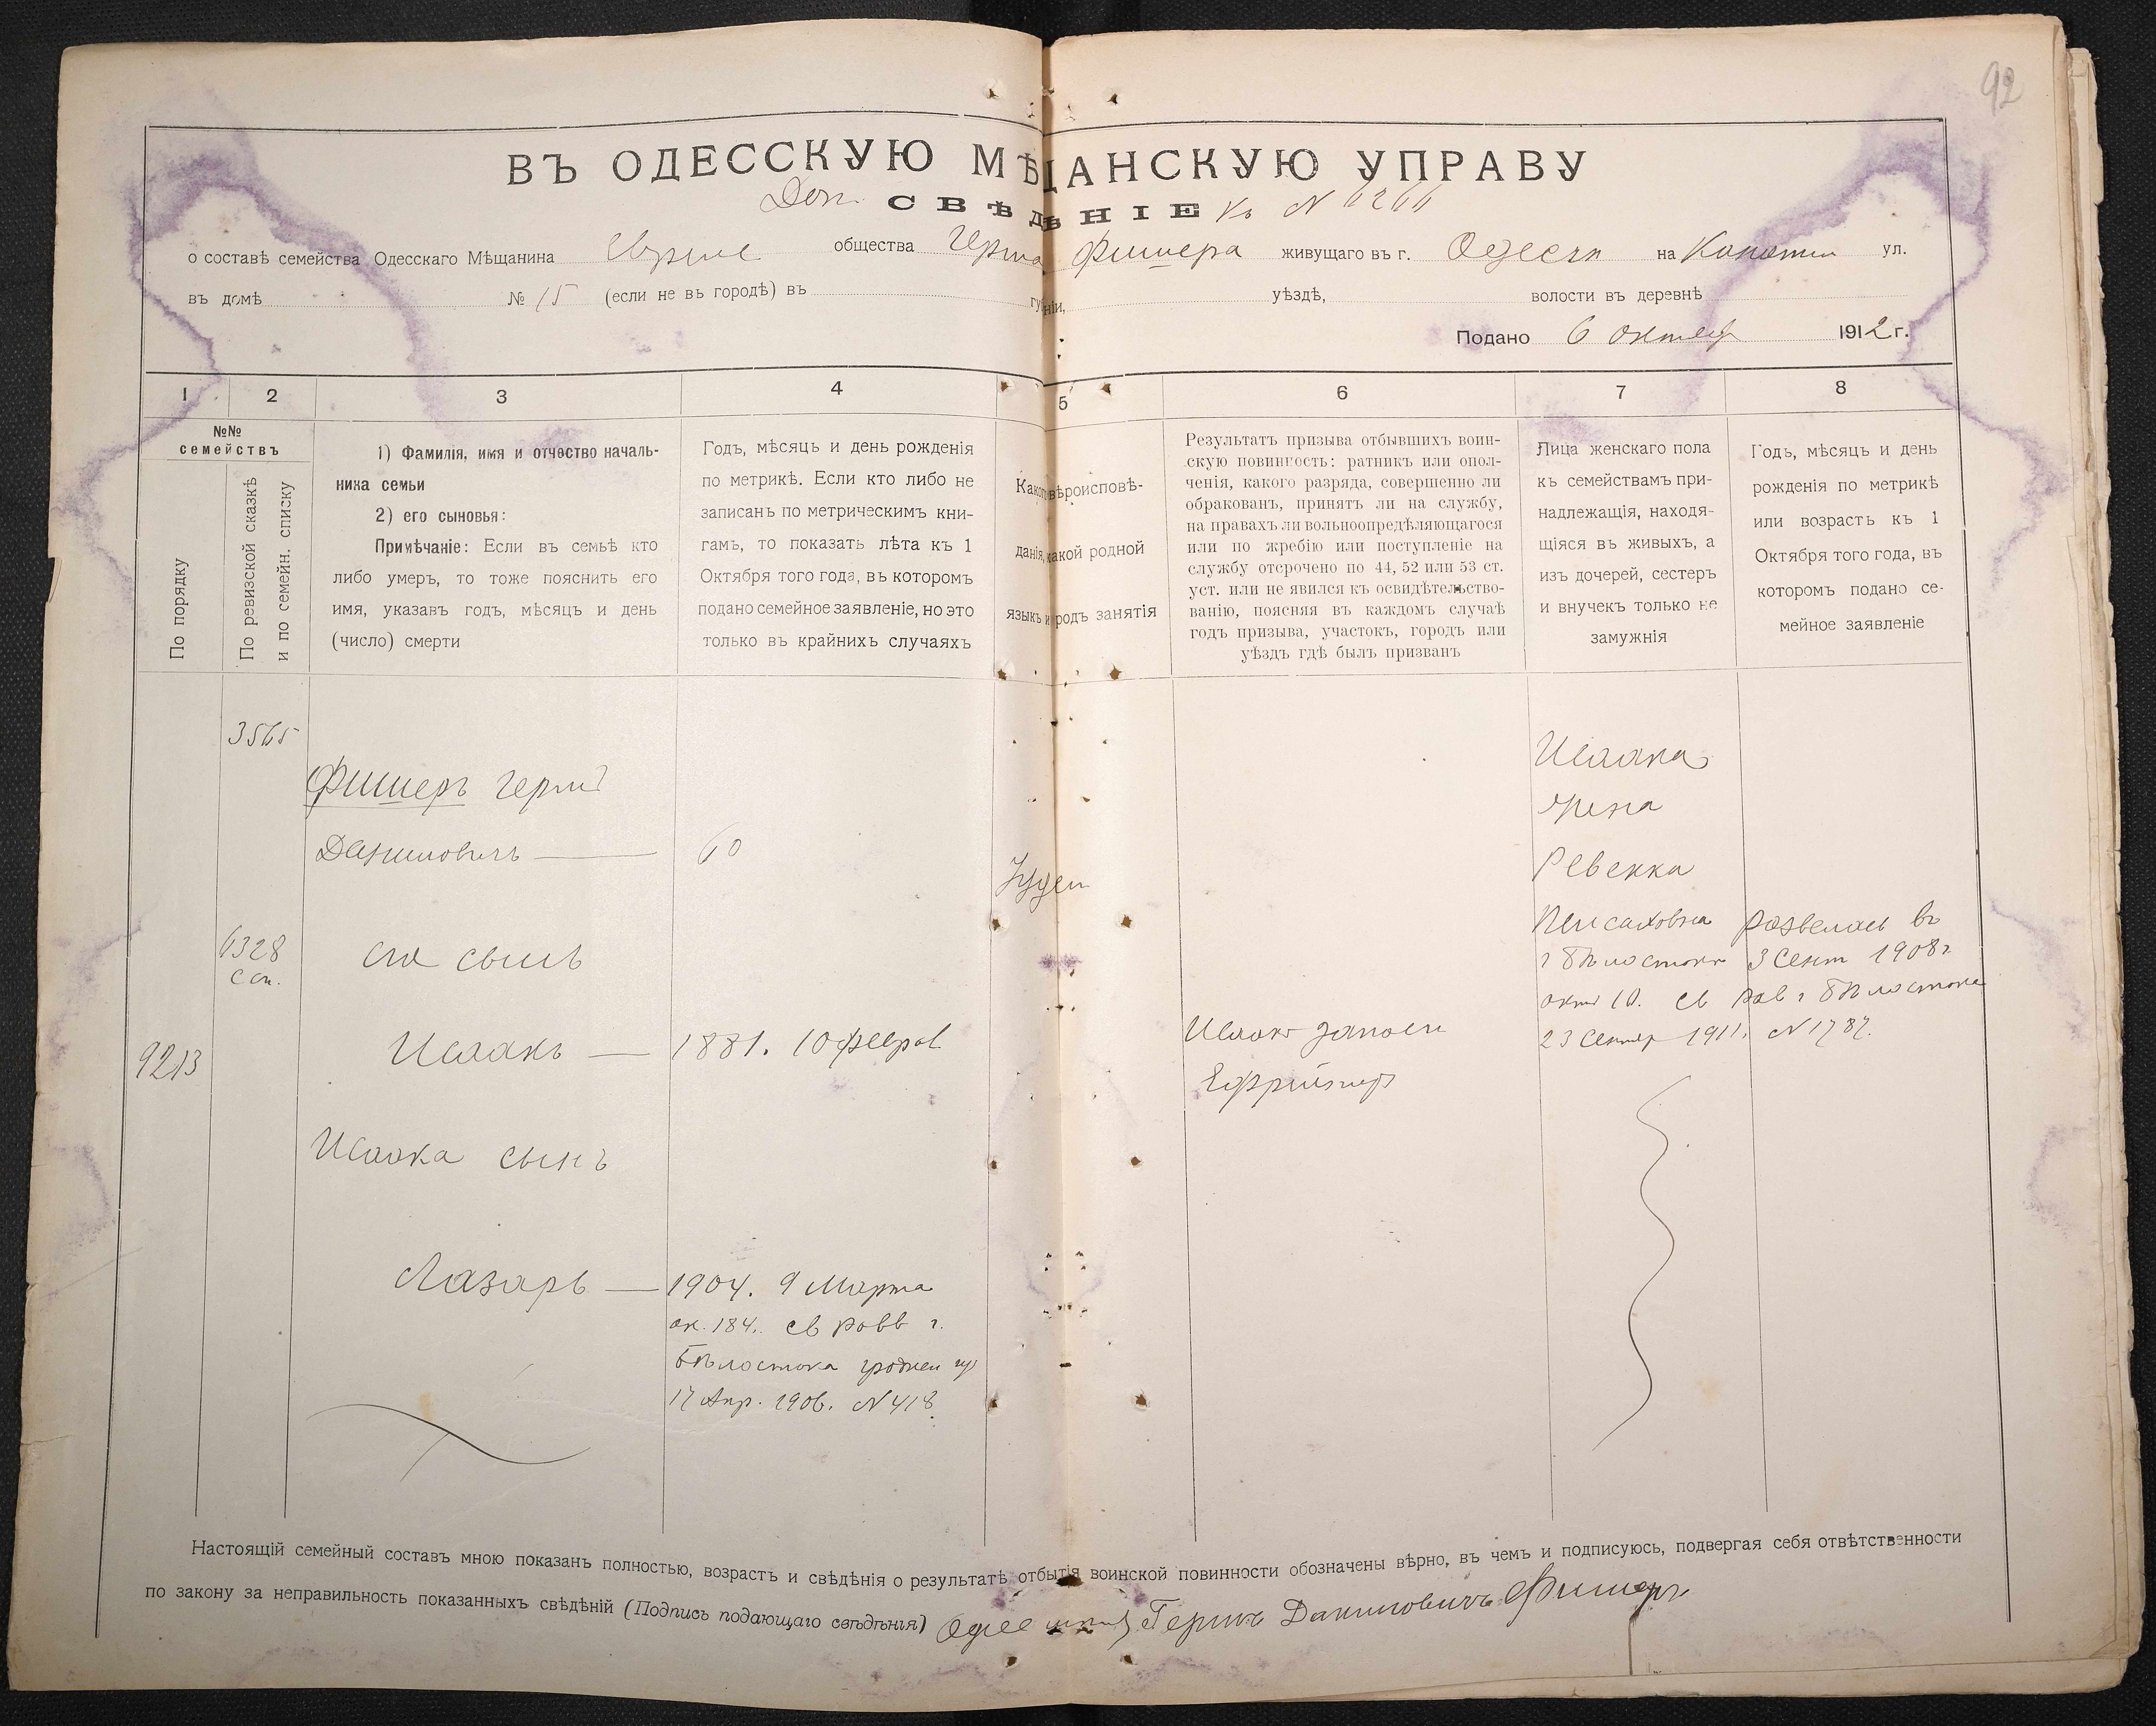 92
ВЪ ОДЕССКУЮ МѢЩАНСКУЮ УПРАВУ
Доп. СВѢДѢНІЕ къ № 6266
о составѣ семейства Одесскаго Мѣщанина общества Герша Фишера живущаго въ г. Одессѣ на Канатн ул.
въ домѣ № 15 (если не въ городѣ) въ губерніи, уѣздѣ, волости въ деревнѣ
Подано 6 октябр 1912 г.
1 2 3 4 5 6 7 8
№№ семействъ
По порядку
По ревизской сказкѣ и по семейн. списку
1) Фамилія, имя и отчество началь-
ника семьи
2) его сыновья:
Примѣчаніе: Если въ семьѣ кто
либо умеръ, то тоже пояснить его
имя, указавъ годъ, мѣсяцъ и день
(число) смерти
Годъ, мѣсяцъ и день рожденія
по метрикѣ. Если кто либо не
записанъ по метрическимъ кни-
гамъ, то показать лѣта къ 1
Октября того года, въ которомъ
подано семейное заявленіе, но это
только въ крайнихъ случаяхъ
Какого вѣроисповѣ-
данія, какой родной
языкъ и родъ занятія
Результатъ призыва отбывшихъ воин-
скую повинность: ратникъ или опол-
ченія, какого разряда, совершенно ли
обракованъ, принятъ ли на службу,
на правахъ ли вольноопредѣляющагося
или по жребію или поступленіе на
службу отсрочено по 44, 52 или 53 ст.
уст. или не явился къ освидѣтельство-
ванію, поясняя въ каждомъ случаѣ
годъ призыва, участокъ, городъ или
уѣздъ гдѣ былъ призванъ
Лица женскаго пола
къ семействамъ при-
надлежащія, находя-
щіяся въ живыхъ, а
изъ дочерей, сестеръ
и внучекъ только не
замужнія
Годъ, мѣсяцъ и день
рожденія по метрикѣ
или возрастъ къ 1
Октября того года, въ
которомъ подано се-
мейное заявленіе
3565
Фишеръ Герш
Даниловичъ — 60
Іудей
6328
с сп.
его сынъ
9213
Исаакъ — 1881. 10 феврал
Исаак запасн
Ефрейтор
Исаака сынъ
Лазарь — 1904. 9 Марта
ак. 184. св равв г.
Бѣлостока гроднен гу
17 Апр. 1906. № 418.
Исаака
жена
Ревекка
Пейсаховна развелась въ
г Бѣлостокѣ 3 Сент 1908 г.
актъ 10. св рав г Бѣлостока
23 Сентяр 1911. № 1787.
Настоящій семейный составъ мною показанъ полностью, возрастъ и свѣдѣнія о результатѣ отбытія воинской повинности обозначены вѣрно, въ чемъ и подписуюсь, подвергая себя отвѣтственности
по закону за неправильность показанныхъ свѣдѣній (Подпись подающаго свѣдѣнія) Гершъ Даниловичъ Фишеръ